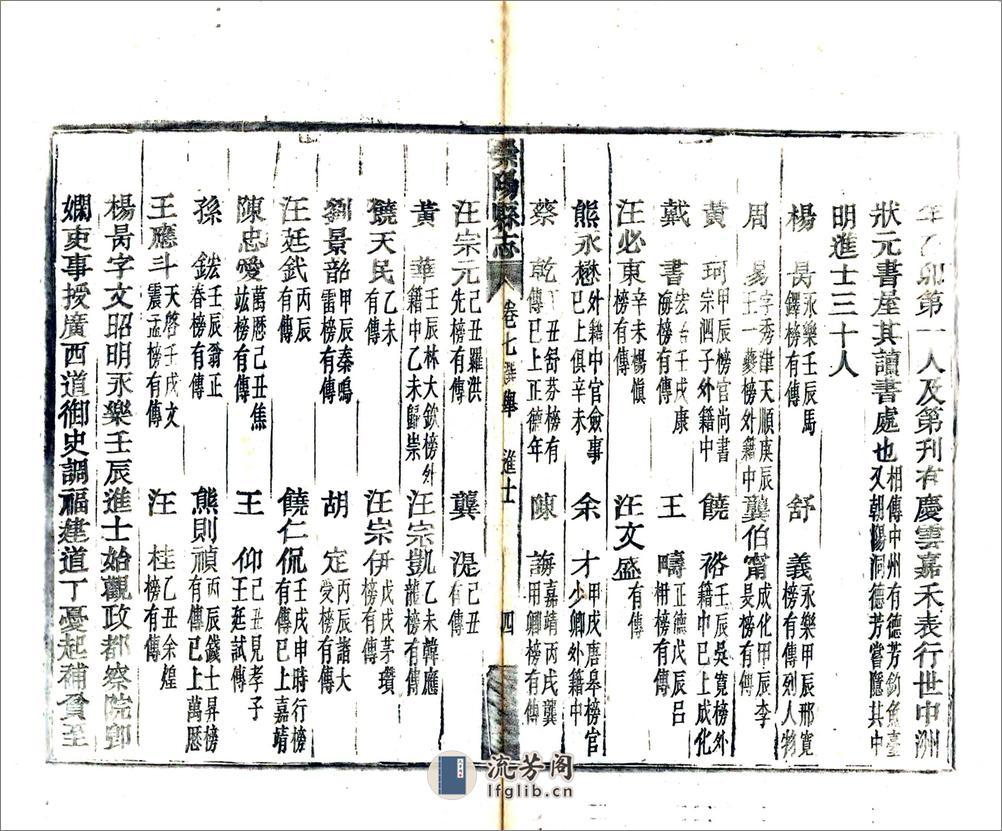 年乙卯第一人及第刊有慶雲嘉禾表行世中洲
狀元書屋其讀書處也相傳中州有德芳釣魚臺又朝陽洞德芳嘗隱其中
明進士三十人
楊 昺永樂壬辰馬鐸榜有傳 舒 義永樂甲辰邢寬榜有傳列人物
周 易字秀津天順庚辰王一夔榜外籍中 龔伯甯成化甲辰李旻榜有傳
黃 珂甲辰榜官尚書宗泗子外籍中 饒 裕壬辰吳寬榜外籍中已上成化
戴 書宏治壬戌康海榜有傳 王 疇正德戊辰呂柟榜有傳
熊永懋外籍中官僉事已上俱辛未 余 才甲戌唐皋榜官少卿外籍中
汪必東辛未楊慎榜有傳 汪文盛有傳
蔡 乾丁丑舒芬榜有傳已上正德年 陳 誨嘉靖丙戌龔用卿榜有傳
崇陽縣志 卷七選舉 進士 四
汪宗元己丑羅洪先榜有傳 龔 湜己丑有傳
黃 華壬辰林大欽榜外籍中乙未歸崇 汪宗凱乙未韓應龍榜有傳
饒天民乙未有傳 汪崇伊戊戌茅瓚榜有傳
劉景韶甲辰秦鳴雷榜有傳 胡 定丙辰諸大受榜有傳
汪廷釴丙辰有傳 饒仁侃壬戌申時行榜有傳已上嘉靖
陳忠愛萬歷己丑焦竑榜有傳 王 仰己丑見孝子王廷試傳
孫 鋐壬辰翁正春榜有傳 熊則禎丙辰錢士昇榜有傳已上萬歷
王應斗天啓壬戌文震孟榜有傳 汪 桂乙丑余煌榜有傳
楊昺字文昭明永樂壬辰進士始觀政都察院卽
嫻吏事授廣西道御史調福建道丁憂起補貪至